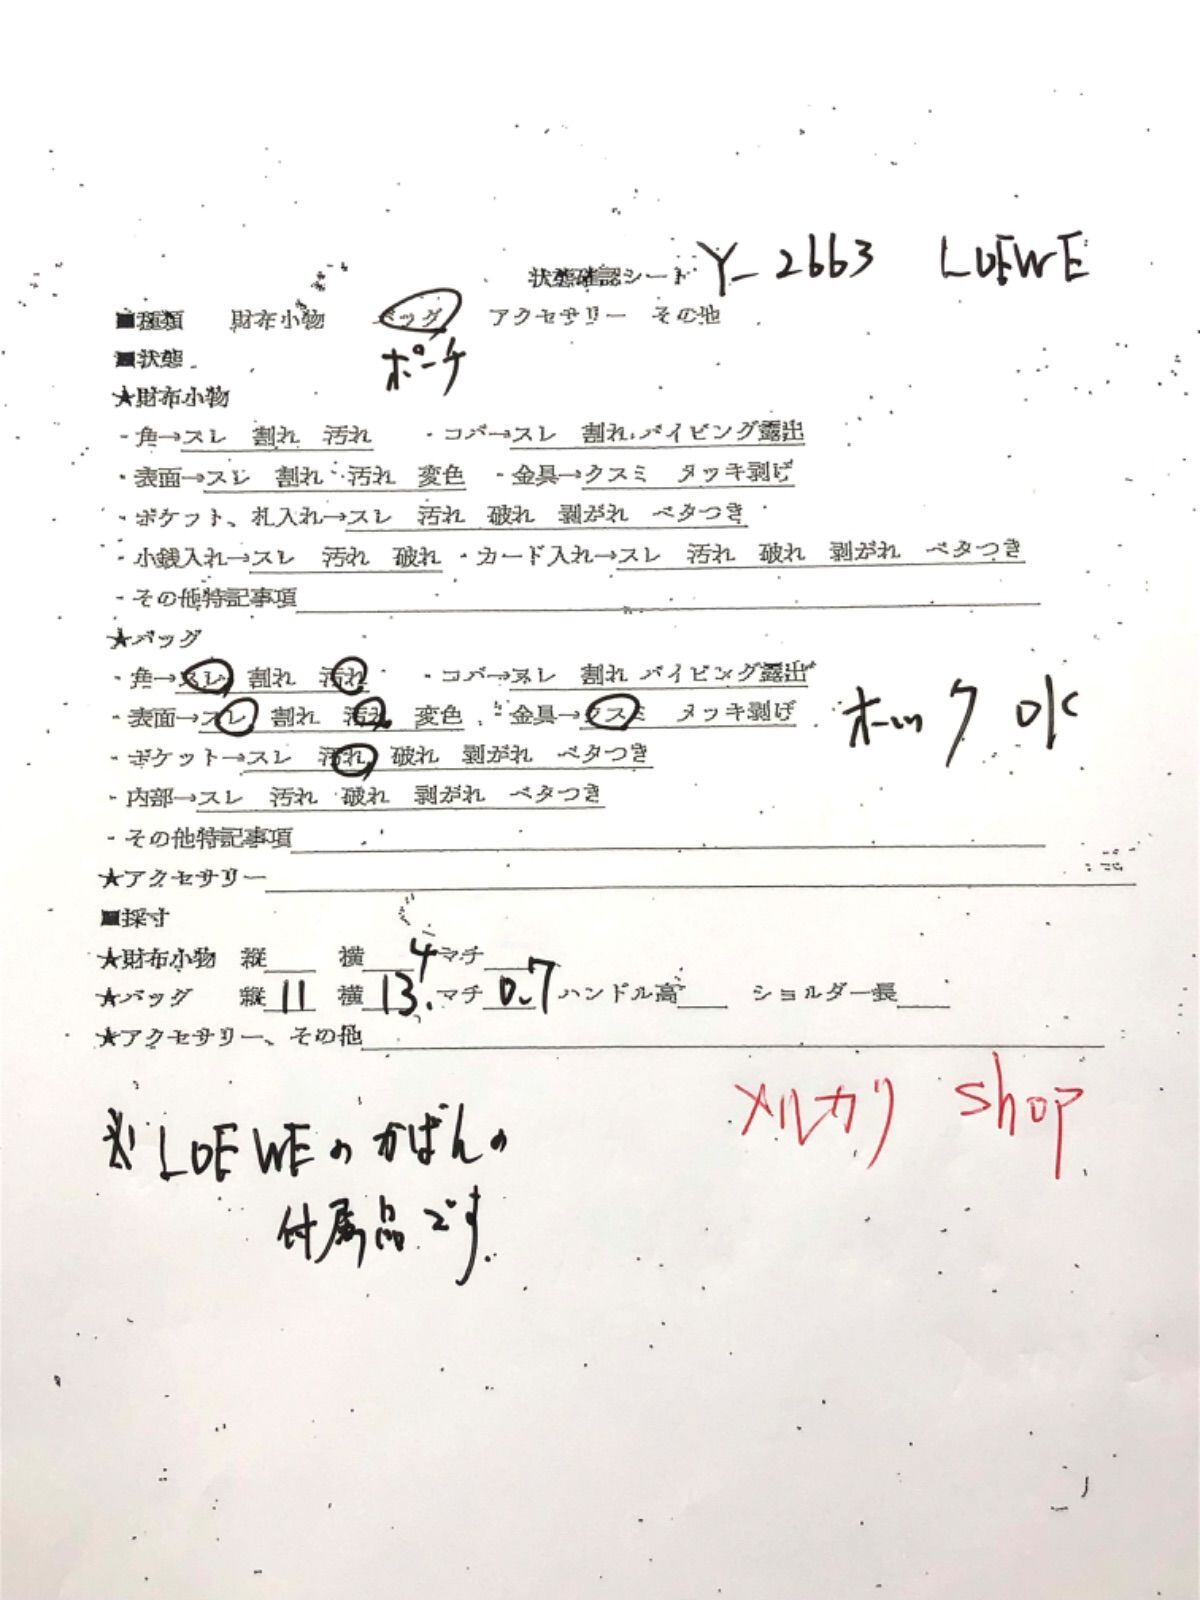 状態確認シート Y-2663 LOEWE
■種類 財布小物 バッグ アクセサリー その他
■状態 ポーチ
★財布小物
・角→スレ 割れ 汚れ ・コバ→スレ 割れ パイピング露出
・表面→スレ 割れ 汚れ 変色 ・金具→クスミ メッキ剥げ
・ポケット、札入れ→スレ 汚れ 破れ 剥がれ ベタつき
・小銭入れ→スレ 汚れ 破れ ・カード入れ→スレ 汚れ 破れ 剥がれ ベタつき
・その他特記事項
★バッグ
・角→スレ 割れ 汚れ ・コバ→スレ 割れ パイピング露出
・表面→スレ 割れ 汚れ 変色 ・金具→クスミ メッキ剥げ ホック OK
・ポケット→スレ 汚れ 破れ 剥がれ ベタつき
・内部→スレ 汚れ 破れ 剥がれ ベタつき
・その他特記事項
★アクセサリー
■採寸
★財布小物 縦 横 マチ
★バッグ 縦 11 横 13.4 マチ 0.7 ハンドル高 ショルダー長
★アクセサリー、その他
メルカリ shop
※LOEWEのかばんの
付属品です.